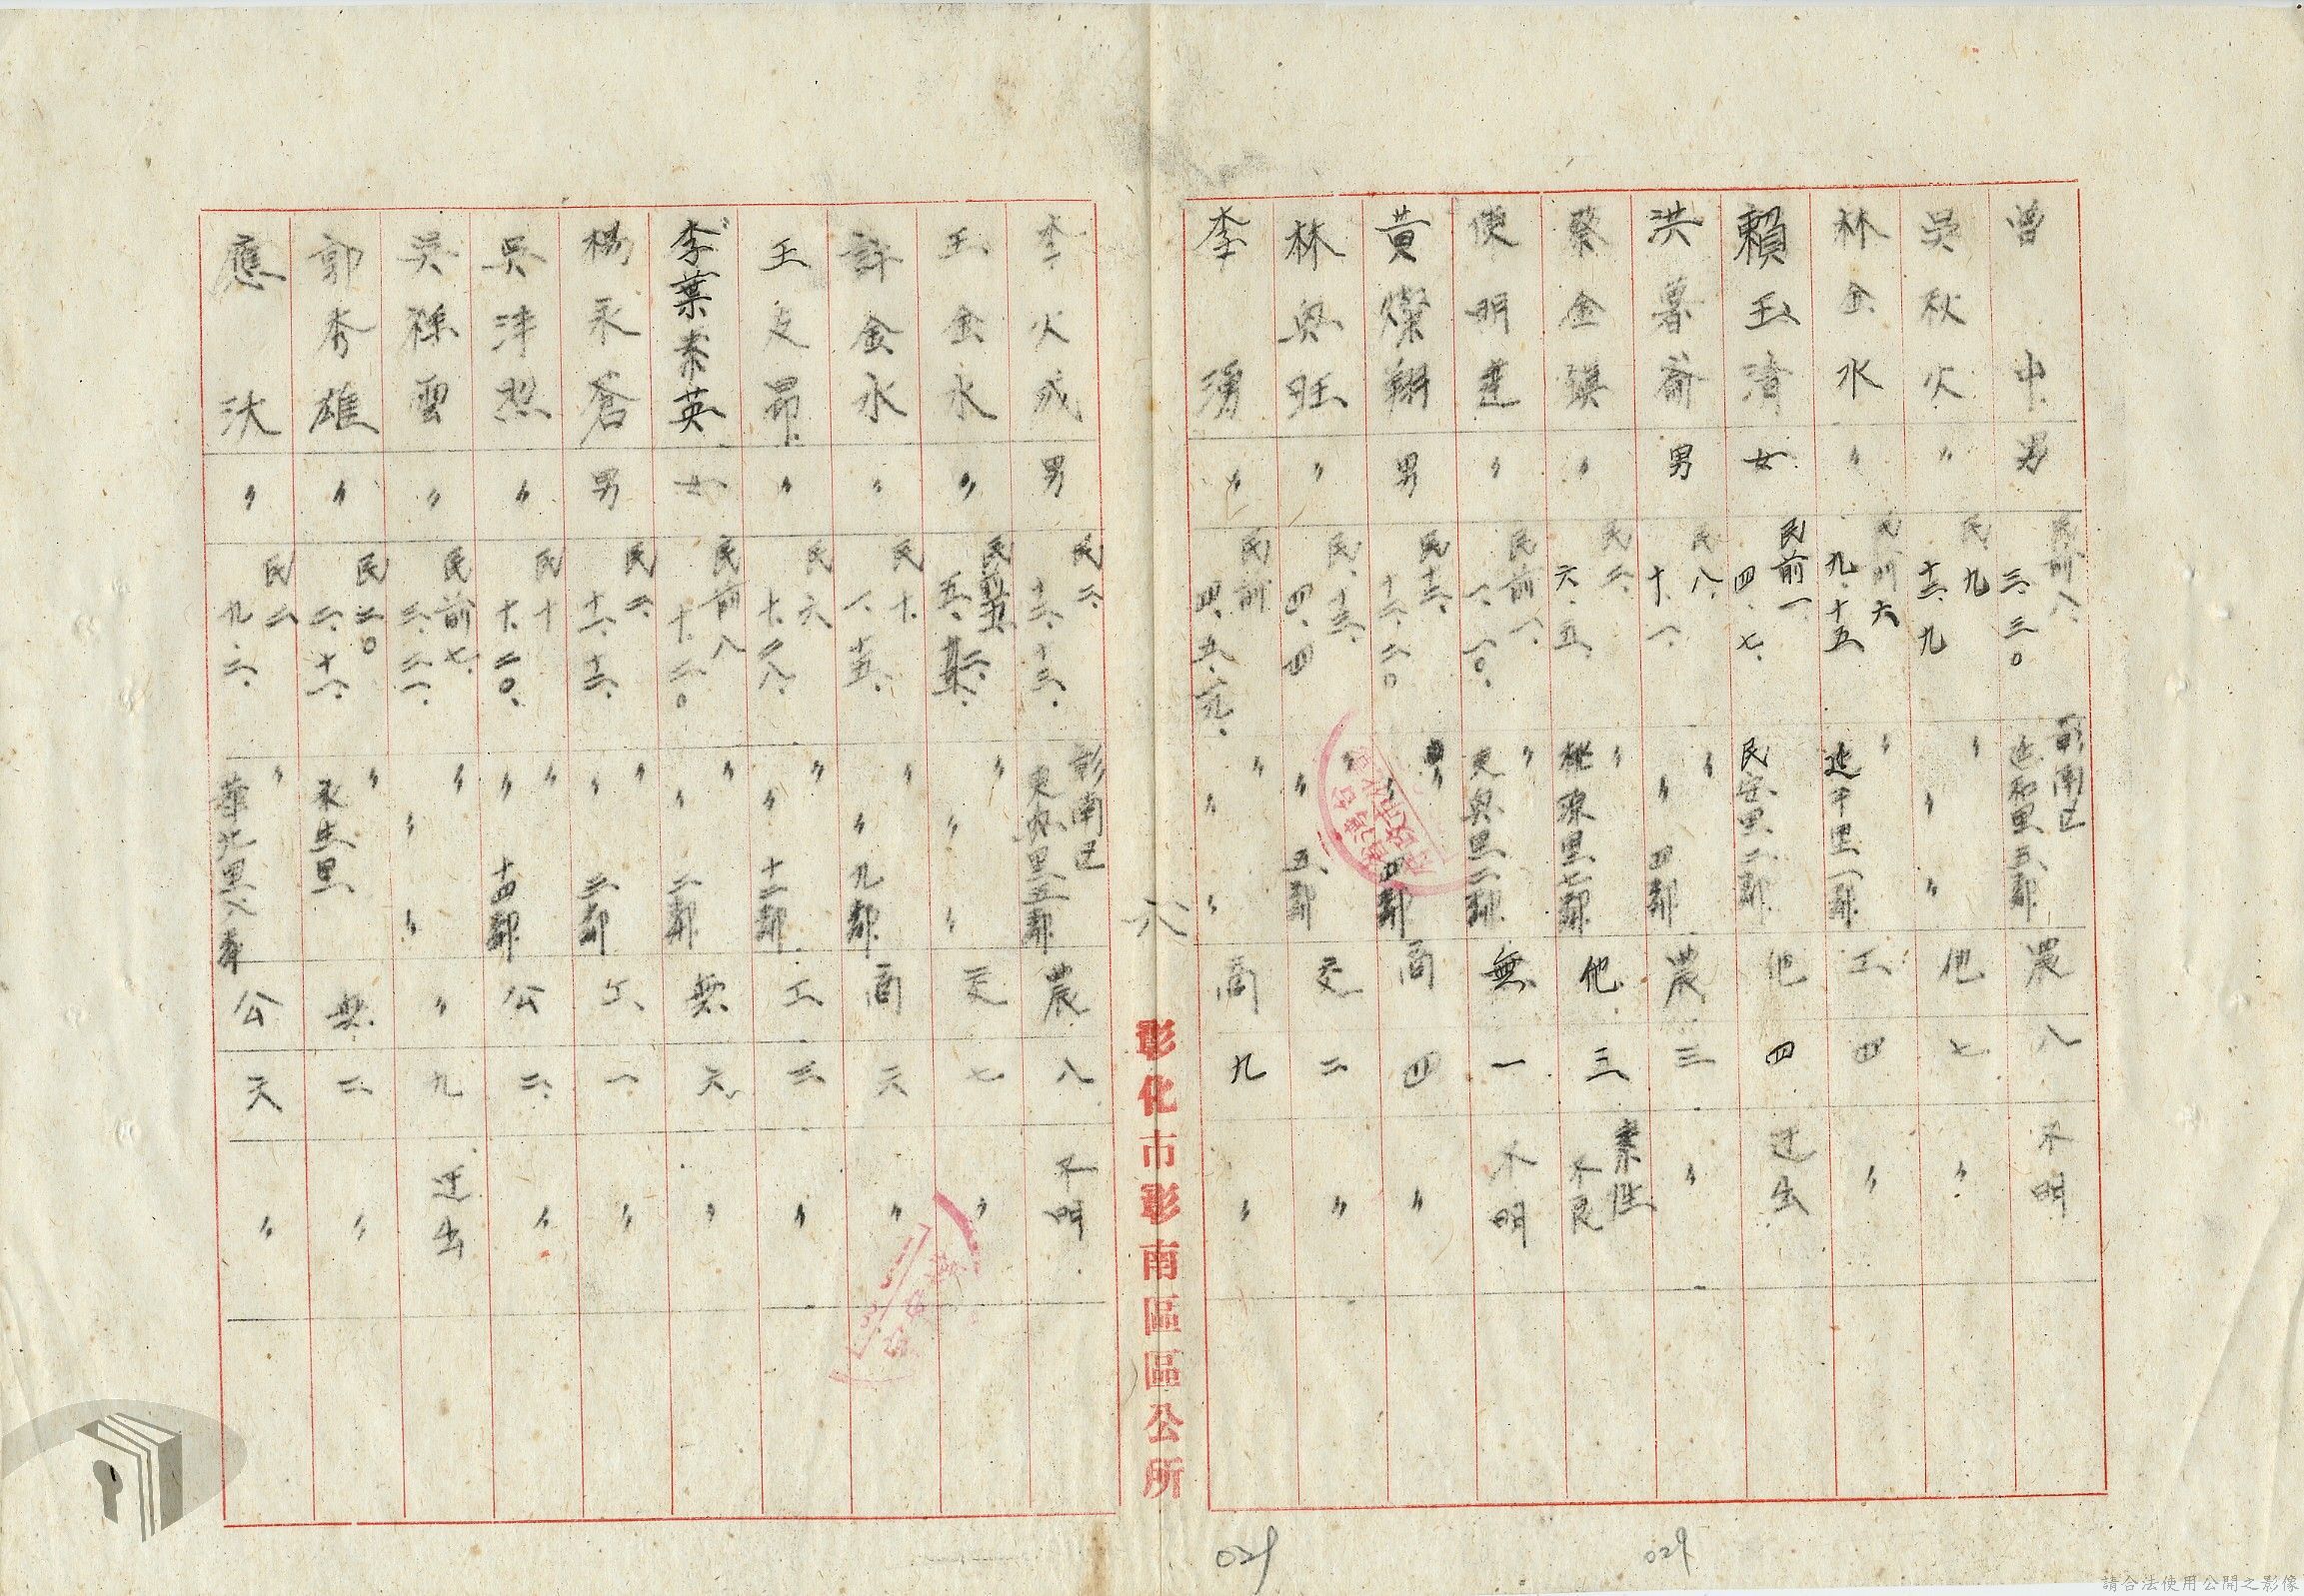 曾 中 男 民前八、三、三〇 彰南区 延和里五鄰 農 八 不明
吳秋火 〃 民九 十二、九 〃 〃 〃 他 七 〃
林金水 〃 民前六 九、十五 〃 延平里一鄰 工 四 〃
賴玉清 女 民前一、四、七、 民安里二鄰 他 四 迁出
洪暮爺 男 民八、十、一、 〃 〃 四鄰 農 三 〃
蔡金 民二、六、五、 〃 里七鄰 他 三 素性不良
明達 〃 民前一、一、一〇、 〃 里二鄰 無 一 不明
黃燦翔 男 民十三、十二、二〇 〃 〃 四鄰 商 四 〃
林興旺 〃 民、十三、四、四 〃 〃 五鄰 交 二 〃
李 湧 〃 民前四、五、九、 〃 〃 〃 商 九 〃
六
彰化市彰南區區公所
李火成 男 民二、十二、十三、 彰南区 東興里五鄰 農 八 不明
王金水 〃 民前五、 〃 〃 〃 交 七 〃
許金水 〃 民十、一、十五、 〃 〃 九鄰 商 六 〃
王 昂 〃 民六 十、二八、 〃 〃 十一鄰 工 三 〃
李葉素英 女 民前八 十、二〇 〃 〃 二鄰 無 六 〃
楊永蒼 男 民二、十二、十二、 〃 〃 三鄰 工 一 〃
吳津烈 〃 民十 十、二〇、 〃 〃 十四鄰 公 二 〃
吳祿雲 〃 民前七、三、二一、 〃 〃 〃 〃 九 迁出
郭秀雄 〃 民二〇 二、十一、 〃 永生里 無 二 〃
應 汰 〃 民二 九、二、 〃 華北里八鄰 公 六 〃
029
029
請合法使用公開之影像